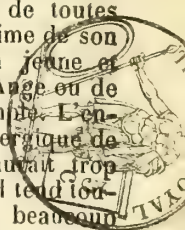 de toutes
ime de son
jeune et
Ange ou de
L'en-
ergique de
trop
l tend
beaucoup
OYAL